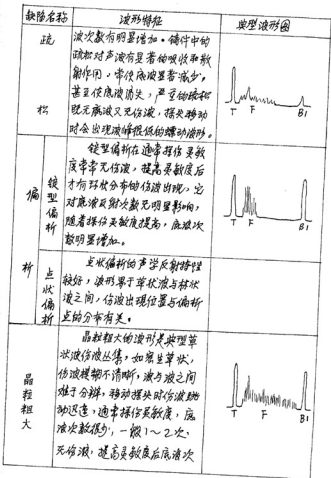 缺陷名称
波形特征
典型波形图
疏
松
波次数有明显增加。铸件中的
疏松对声波有显著的吸收和散
射作用，常使底波显著减少，
甚至使底波消失，严重的疏松
既无底波又无伤波，探头移动
时会出现波峰很低的蠕动波形。
T F B1
偏
析
锭型偏析
锭型偏析在通常探伤灵敏
度常常无伤波，提高灵敏度后
才有环状分布的伤波出现，它
对底波反射次数无明显影响，
随着探伤灵敏度提高，底波次
数明显增加。
T F B1
点状偏析
点状偏析的声学反射特性
较好，波形界于草状波与林状
波之间，伤波出现位置与偏析
点的分布有关。
晶粒粗大
晶粒粗大的波形是典型草
状波伤波丛集，如密生草状，
伤波模糊不清晰，波与波之间
难于分辨，移动探头时伤波跳
动迅速，通常探伤灵敏度，底
波次数很少，一般1～2次，
无伤波，提高灵敏度后底波次
T F B1